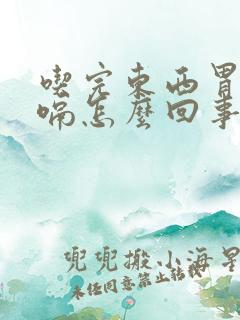 喫完東西胃
喘怎麼回事
兜兜搬小海星
未经同意禁止转载